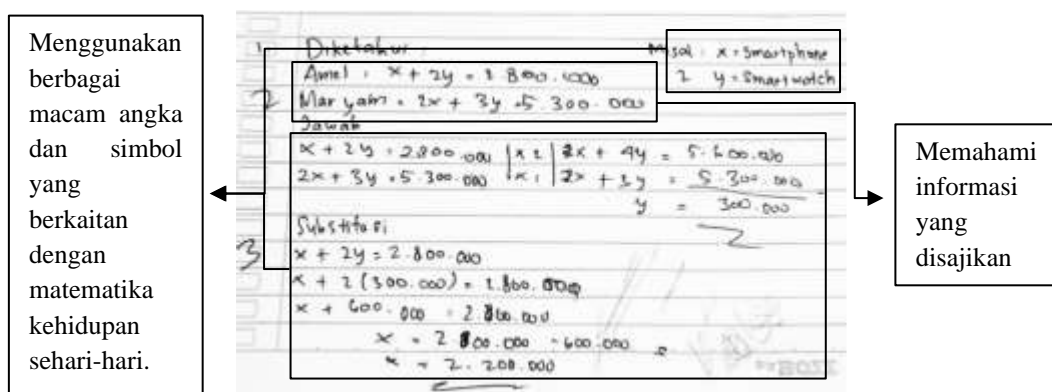 Menggunakan
berbagai
macam angka
dan simbol
yang
berkaitan
dengan
matematika
kehidupan
sehari-hari.
1. Diketahui :
Misal : x = Smartphone
2 y = Smartwatch
Amel : x + 2y = 2.800.000
2 Maryam = 2x + 3y = 5.300.000
Jawab
x + 2y = 2.800.000 | x 2 | 2x + 4y = 5.600.000
2x + 3y = 5.300.000 | x 1 | 2x + 3y = 5.300.000
y = 300.000
Substitusi
3 x + 2y = 2.800.000
x + 2 (300.000) = 2.800.000
x + 600.000 = 2.800.000
x = 2.800.000 - 600.000
x = 2.200.000
Memahami
informasi
yang
disajikan